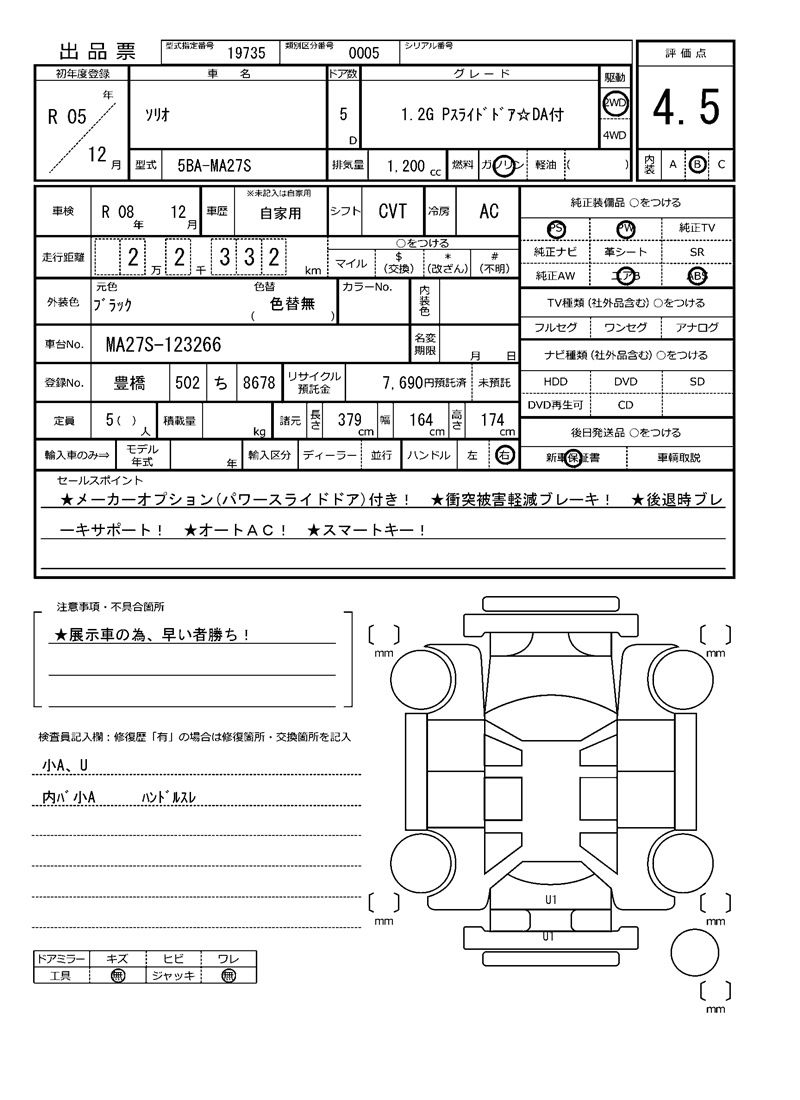 出品票 型式指定番号 19735 類別区分番号 0005 シリアル番号
評価点
4.5
内装 A B C
初年度登録 車名 ドア数 グレード 駆動
R 05 年 12 月 ソリオ 5 D 1.2G Pスライドドア☆DA付 2WD
4WD
型式 5BA-MA27S 排気量 1,200 cc 燃料 ガソリン 軽油 ( )
車検 R 08 年 12 月 車歴 ※未記入は自家用 自家用 シフト CVT 冷房 AC
走行距離 2 万 2 千 3 3 2 km ○をつける
マイル $(交換) *(改ざん) #(不明)
外装色 元色 ブラック 色替 ( 色替無 ) カラーNo. 内装色
車台No. MA27S-123266 名変期限 月 日
登録No. 豊橋 502 ち 8678 リサイクル預託金 7,690円預託済 未預託
定員 5( ) 人 積載量 kg 諸元 長さ 379 cm 幅 164 cm 高さ 174 cm
輸入車のみ⇒ モデル年式 年 輸入区分 ディーラー 並行 ハンドル 左 右
純正装備品 ○をつける
PS PW 純正TV
純正ナビ 革シート SR
純正AW エアB ABS
TV種類(社外品含む) ○をつける
フルセグ ワンセグ アナログ
ナビ種類(社外品含む) ○をつける
HDD DVD SD
DVD再生可 CD
後日発送品 ○をつける
新車保証書 車輌取説
セールスポイント
★メーカーオプション(パワースライドドア)付き! ★衝突被害軽減ブレーキ! ★後退時ブレ
ーキサポート! ★オートAC! ★スマートキー!
注意事項・不具合箇所
★展示車の為、早い者勝ち!
検査員記入欄:修復歴「有」の場合は修復箇所・交換箇所を記入
小A、U
内バ小A ハンドルスレ
ドアミラー キズ ヒビ ワレ
工具 無 ジャッキ 無
mm
mm
U1
U1
mm
mm
mm